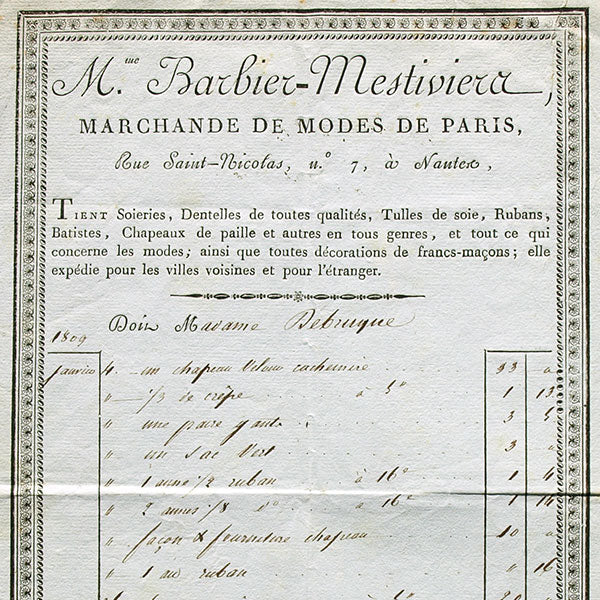 M.me Barbier-Mestiviers,
MARCHANDE DE MODES DE PARIS,
Rue Saint-Nicolas, n.o 7, à Nantes,
TIENT Soieries, Dentelles de toutes qualités, Tulles de soie, Rubans,
Batistes, Chapeaux de paille et autres en tous genres, et tout ce qui
concerne les modes; ainsi que toutes décorations de francs-maçons; elle
expédie pour les villes voisines et pour l'étranger.
Doit Madame Debruque
1809
Janvier 4. un chapeau Velour cachemire 33 "
" 1/3 de crêpe à 5" 1 13
" une paire gants 3 5
" un sac Vert 3 "
" 1 aune 1/2 ruban à 16s 1 4
" 2 aunes 1/8 do à 16s 1 14
" façon & fourniture chapeau 10 "
" 1 au ruban " 16